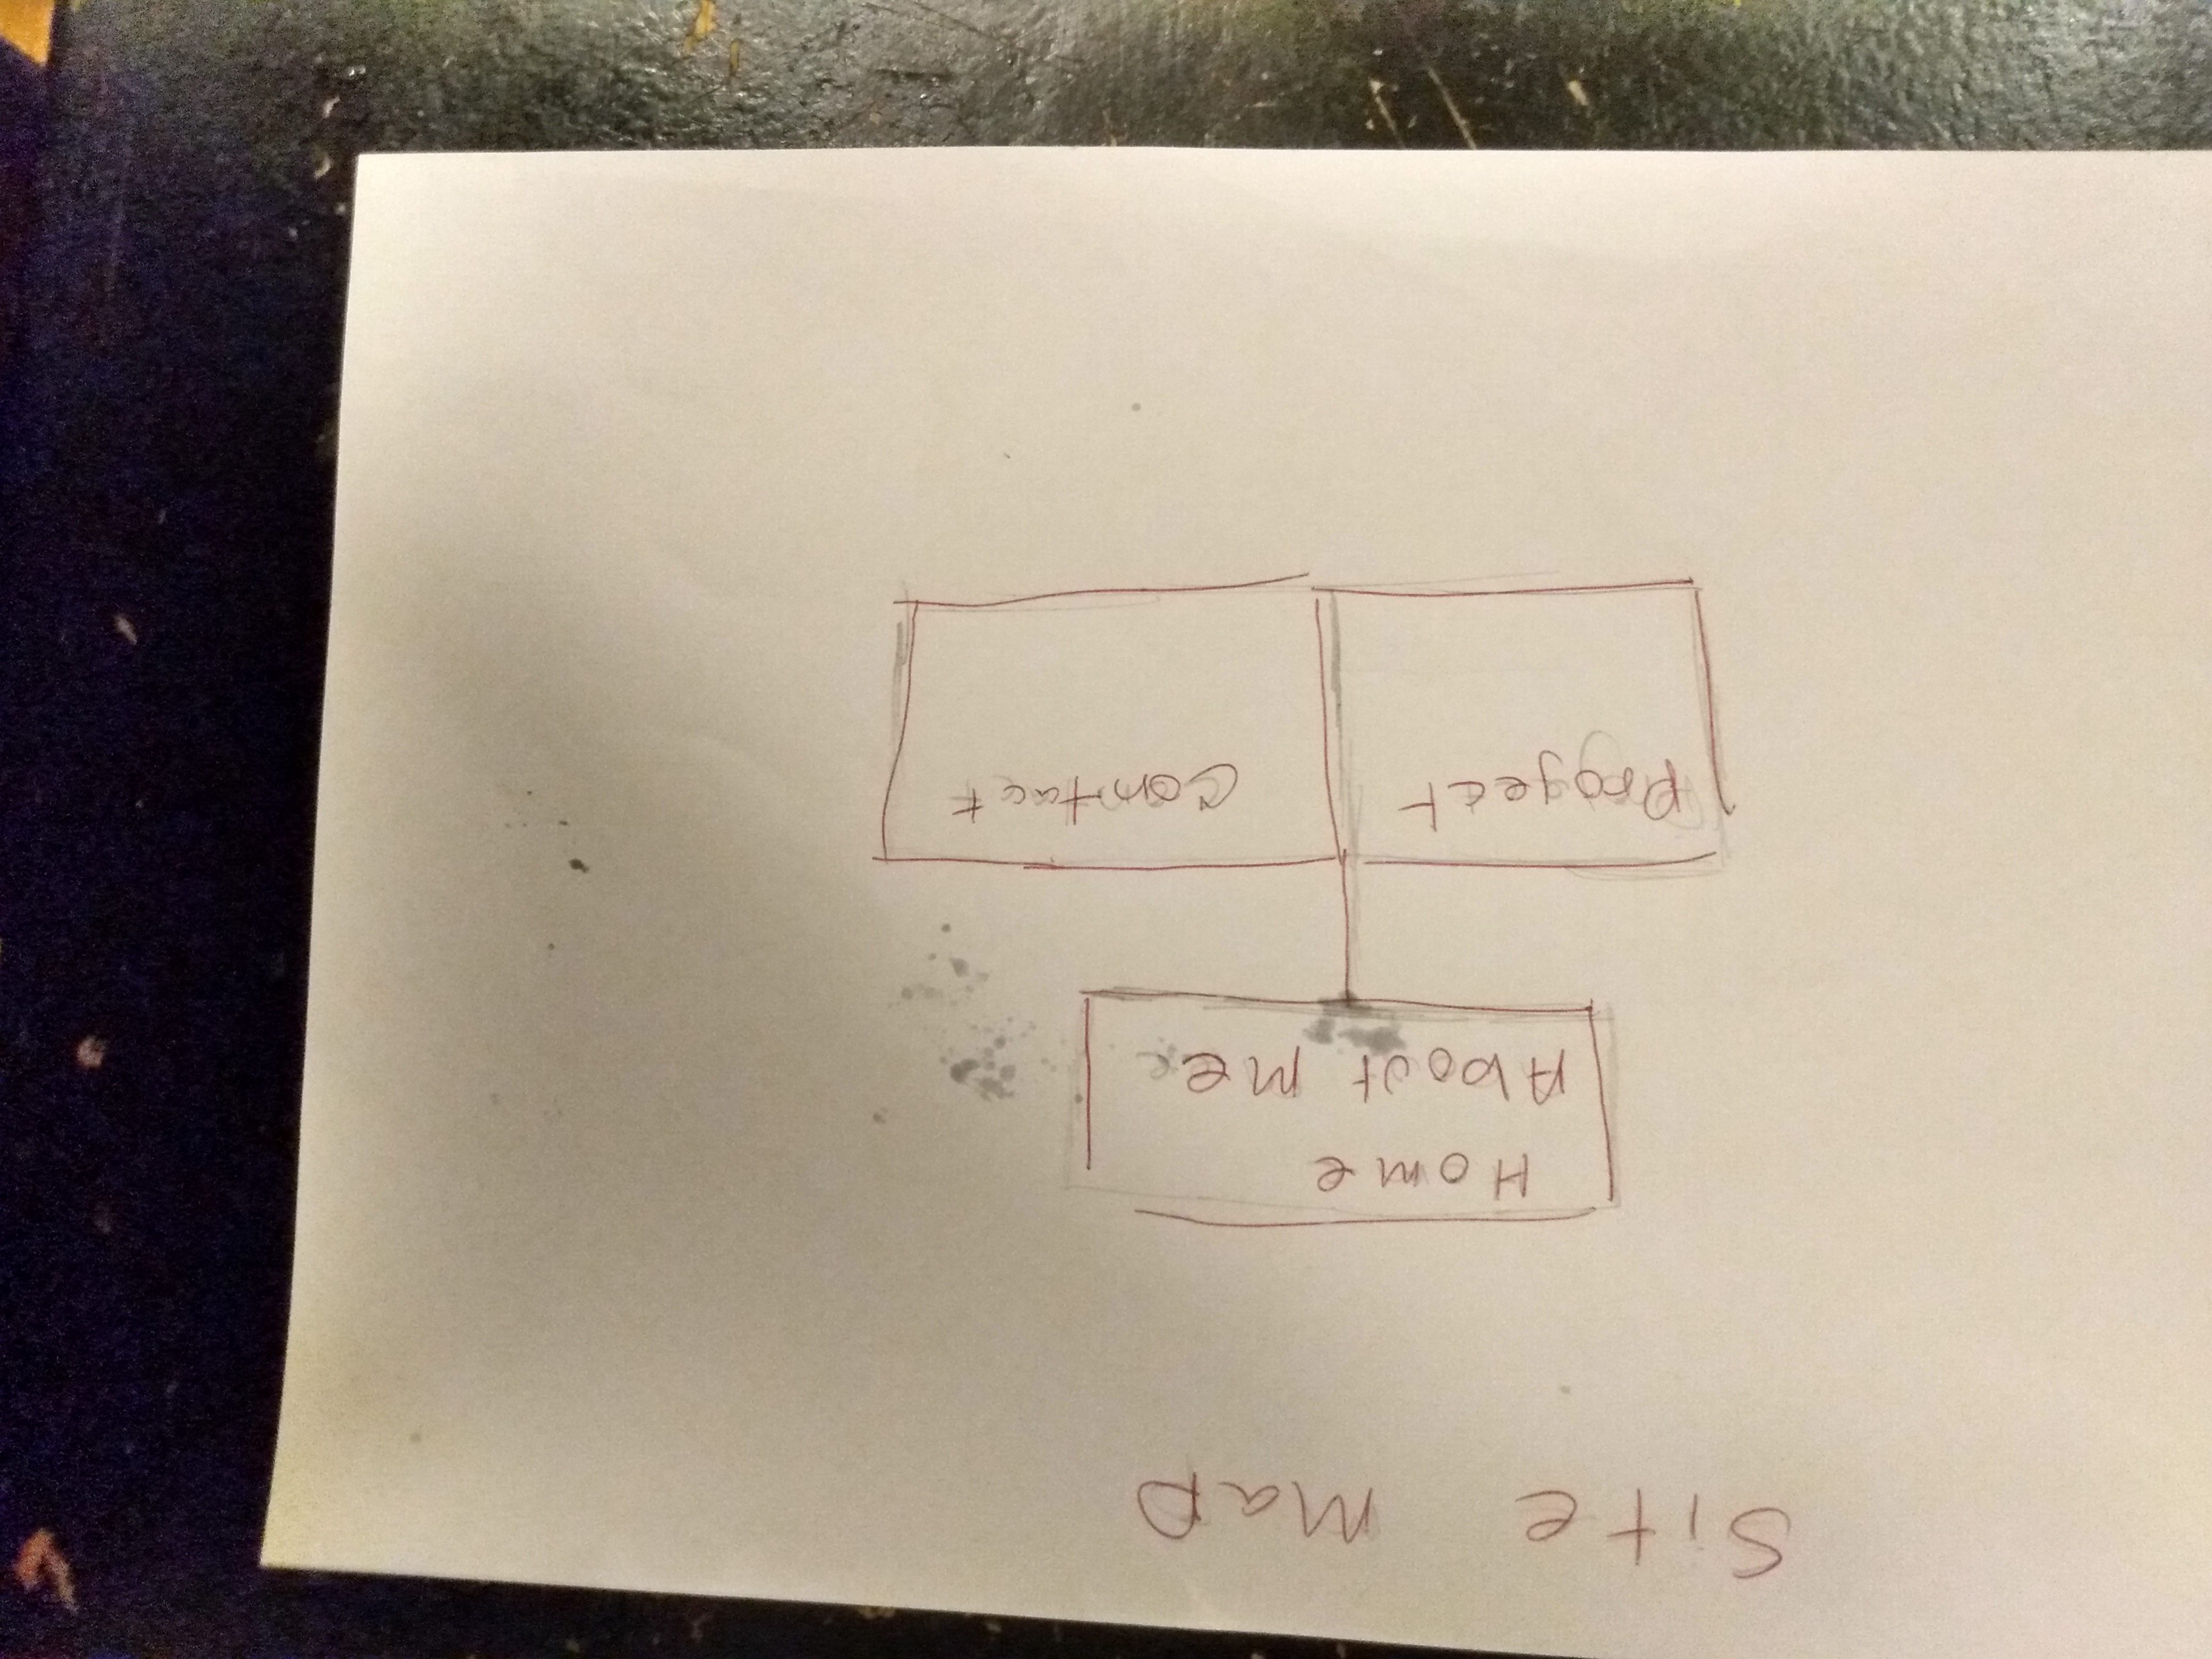 Site Map
Home
About me
Progect Contact